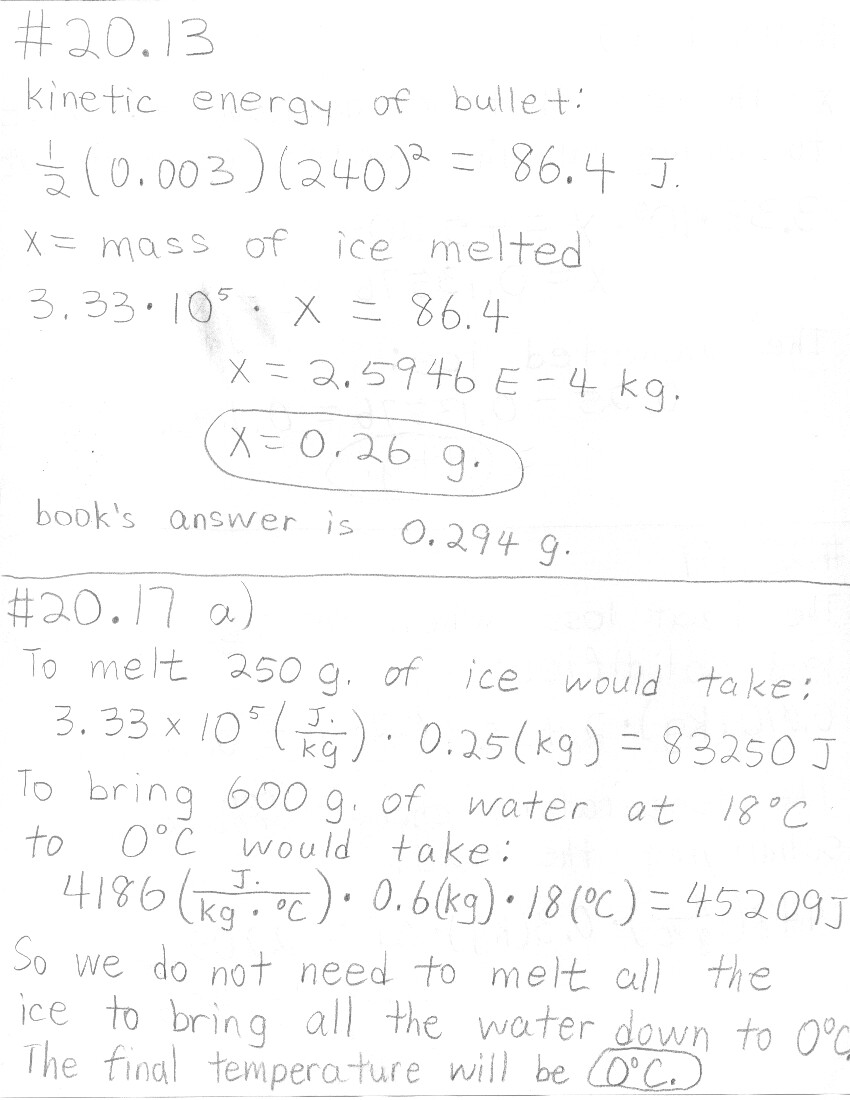 #20.13
kinetic energy of bullet:
½(0.003)(240)² = 86.4 J.
x = mass of ice melted
3.33·10⁵ · x = 86.4
x = 2.5946 E-4 kg.
x = 0.26 g.
book's answer is 0.294 g.
#20.17 a)
To melt 250 g. of ice would take:
3.33 x 10⁵ (J./kg) · 0.25(kg) = 83250 J
To bring 600 g. of water at 18°C
to 0°C would take:
4186 (J./kg · °C) · 0.6(kg) · 18(°C) = 45209J
So we do not need to melt all the
ice to bring all the water down to 0°C.
The final temperature will be 0°C.